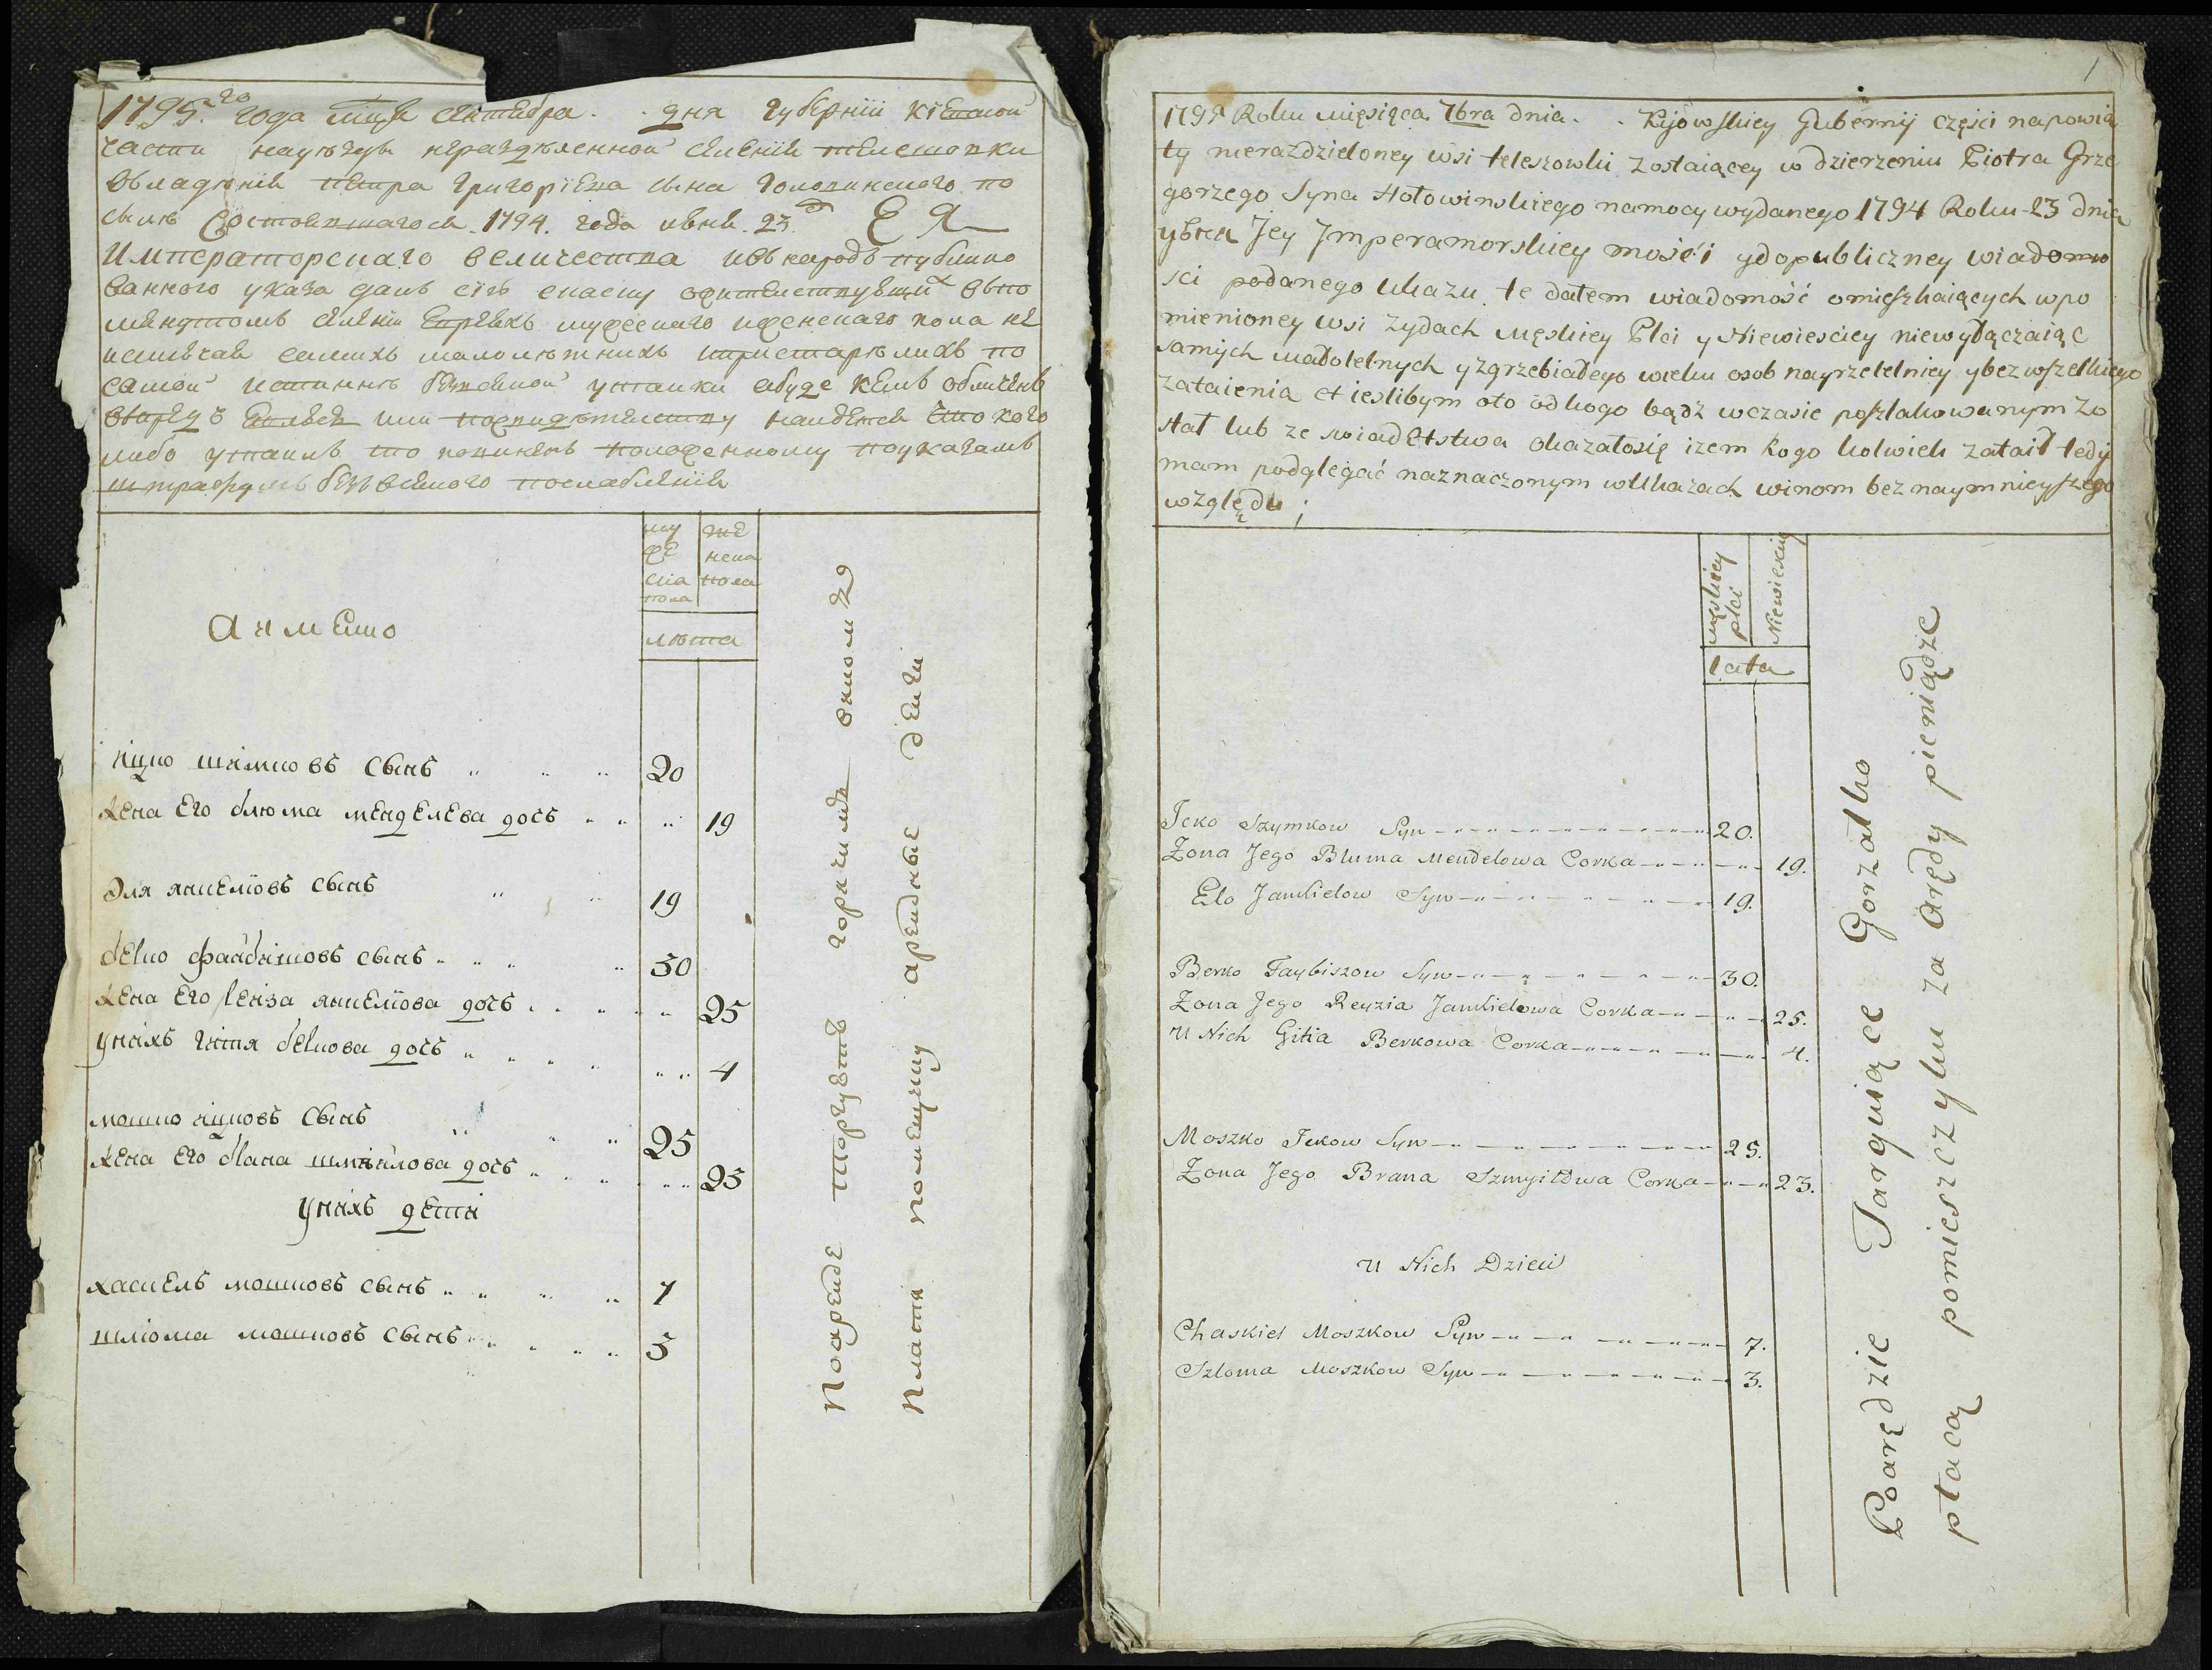 1795.го года мца сентебра . . дня губернїи кїевской
части науезды неразделенной селенїя телешовки
овладенїи петра григорїева сына головинского по
силе состоявшагося 1794. года июня 23 Е Я
Императорскаго величества ивънародъ публико
ванного указа далъ сїю скаску
селенїи евреяхъ мужескаго иженскаго пола не
самихъ малолетнихъ ипрестарелихъ по
самой истинне безвсякой утайки абуде кемъ обличенъ
или найдется что кого
либо утаилъ то повиненъ положенному поуказамъ
штрафу безъ всякого послабленїя
му
же
ска
пола
же
нска
пола
лета
а имено
іцко шимковъ сынъ 20
жена его блюма менделева дочъ 19
Эля янкелїовъ сынъ 19
берко файбишовъ сынъ 30
жена его реиза янкелїова дочъ 25
унихъ гитя беркова дочъ 4
мошко іцковъ сынъ 25
жена его брана шмуйлова дочъ 23
унихъ дети
хаскель мошковъ сынъ 7
шліома мошковъ сынъ 3
Поаренде торгуютъ горячимъ виномъ
Платя помещику арендные денги
1
1795 Roku miesiąca 7bra dnia . . Kijowskiey Gubernij części napowia
ty nierazdzieloney wsi teleszowki zostaiącey w dzierzeniu Piotra Grze
gorzego Syna Hołowinskiego namocy wydanego 1794 Roku 23 dnia
Jey Jmperamorskiey mości ydopubliczney wiadomo
sci podanego Ukazu te dałem wiadomość omieszkaiących wpo
mienioney wsi Zydach męskiey Płci y Niewiesciey niewyłączaiąc
samych małoletnych yzgrzebiałego wieku osob nayrzetelniey ybez wszelkiego
zataienia et ieslibym oto od kogo bądz wczasie poszlakowanym zo
stał lub ze swiadetstwa okazałosię izem kogo kolwiek zataił tedy
mam podglegać naznaczonym wUkazach winom bez naymnieyszego
względu ;
męskiey
płci
Niewiesciey
lata
Icko Szymkow Syn 20.
Zona Jego Bluma Mendelowa Corka 19.
Elo Jankielow Syn 19.
Berko Faybiszow Syn 30.
Zona Jego Reyzia Jankielowa Corka 25.
U Nich Gitia Berkowa Corka 4.
Moszko Ickow Syn 25.
Zona Jego Brana Szmyiłowa Corka 23.
U Nich Dzieci
Chaskiel Moszkow Syn 7.
Szloma Moszkow Syn 3.
Poarędzie Targuiące Gorzałko
płacą pomieszczyku za arędy pieniądze